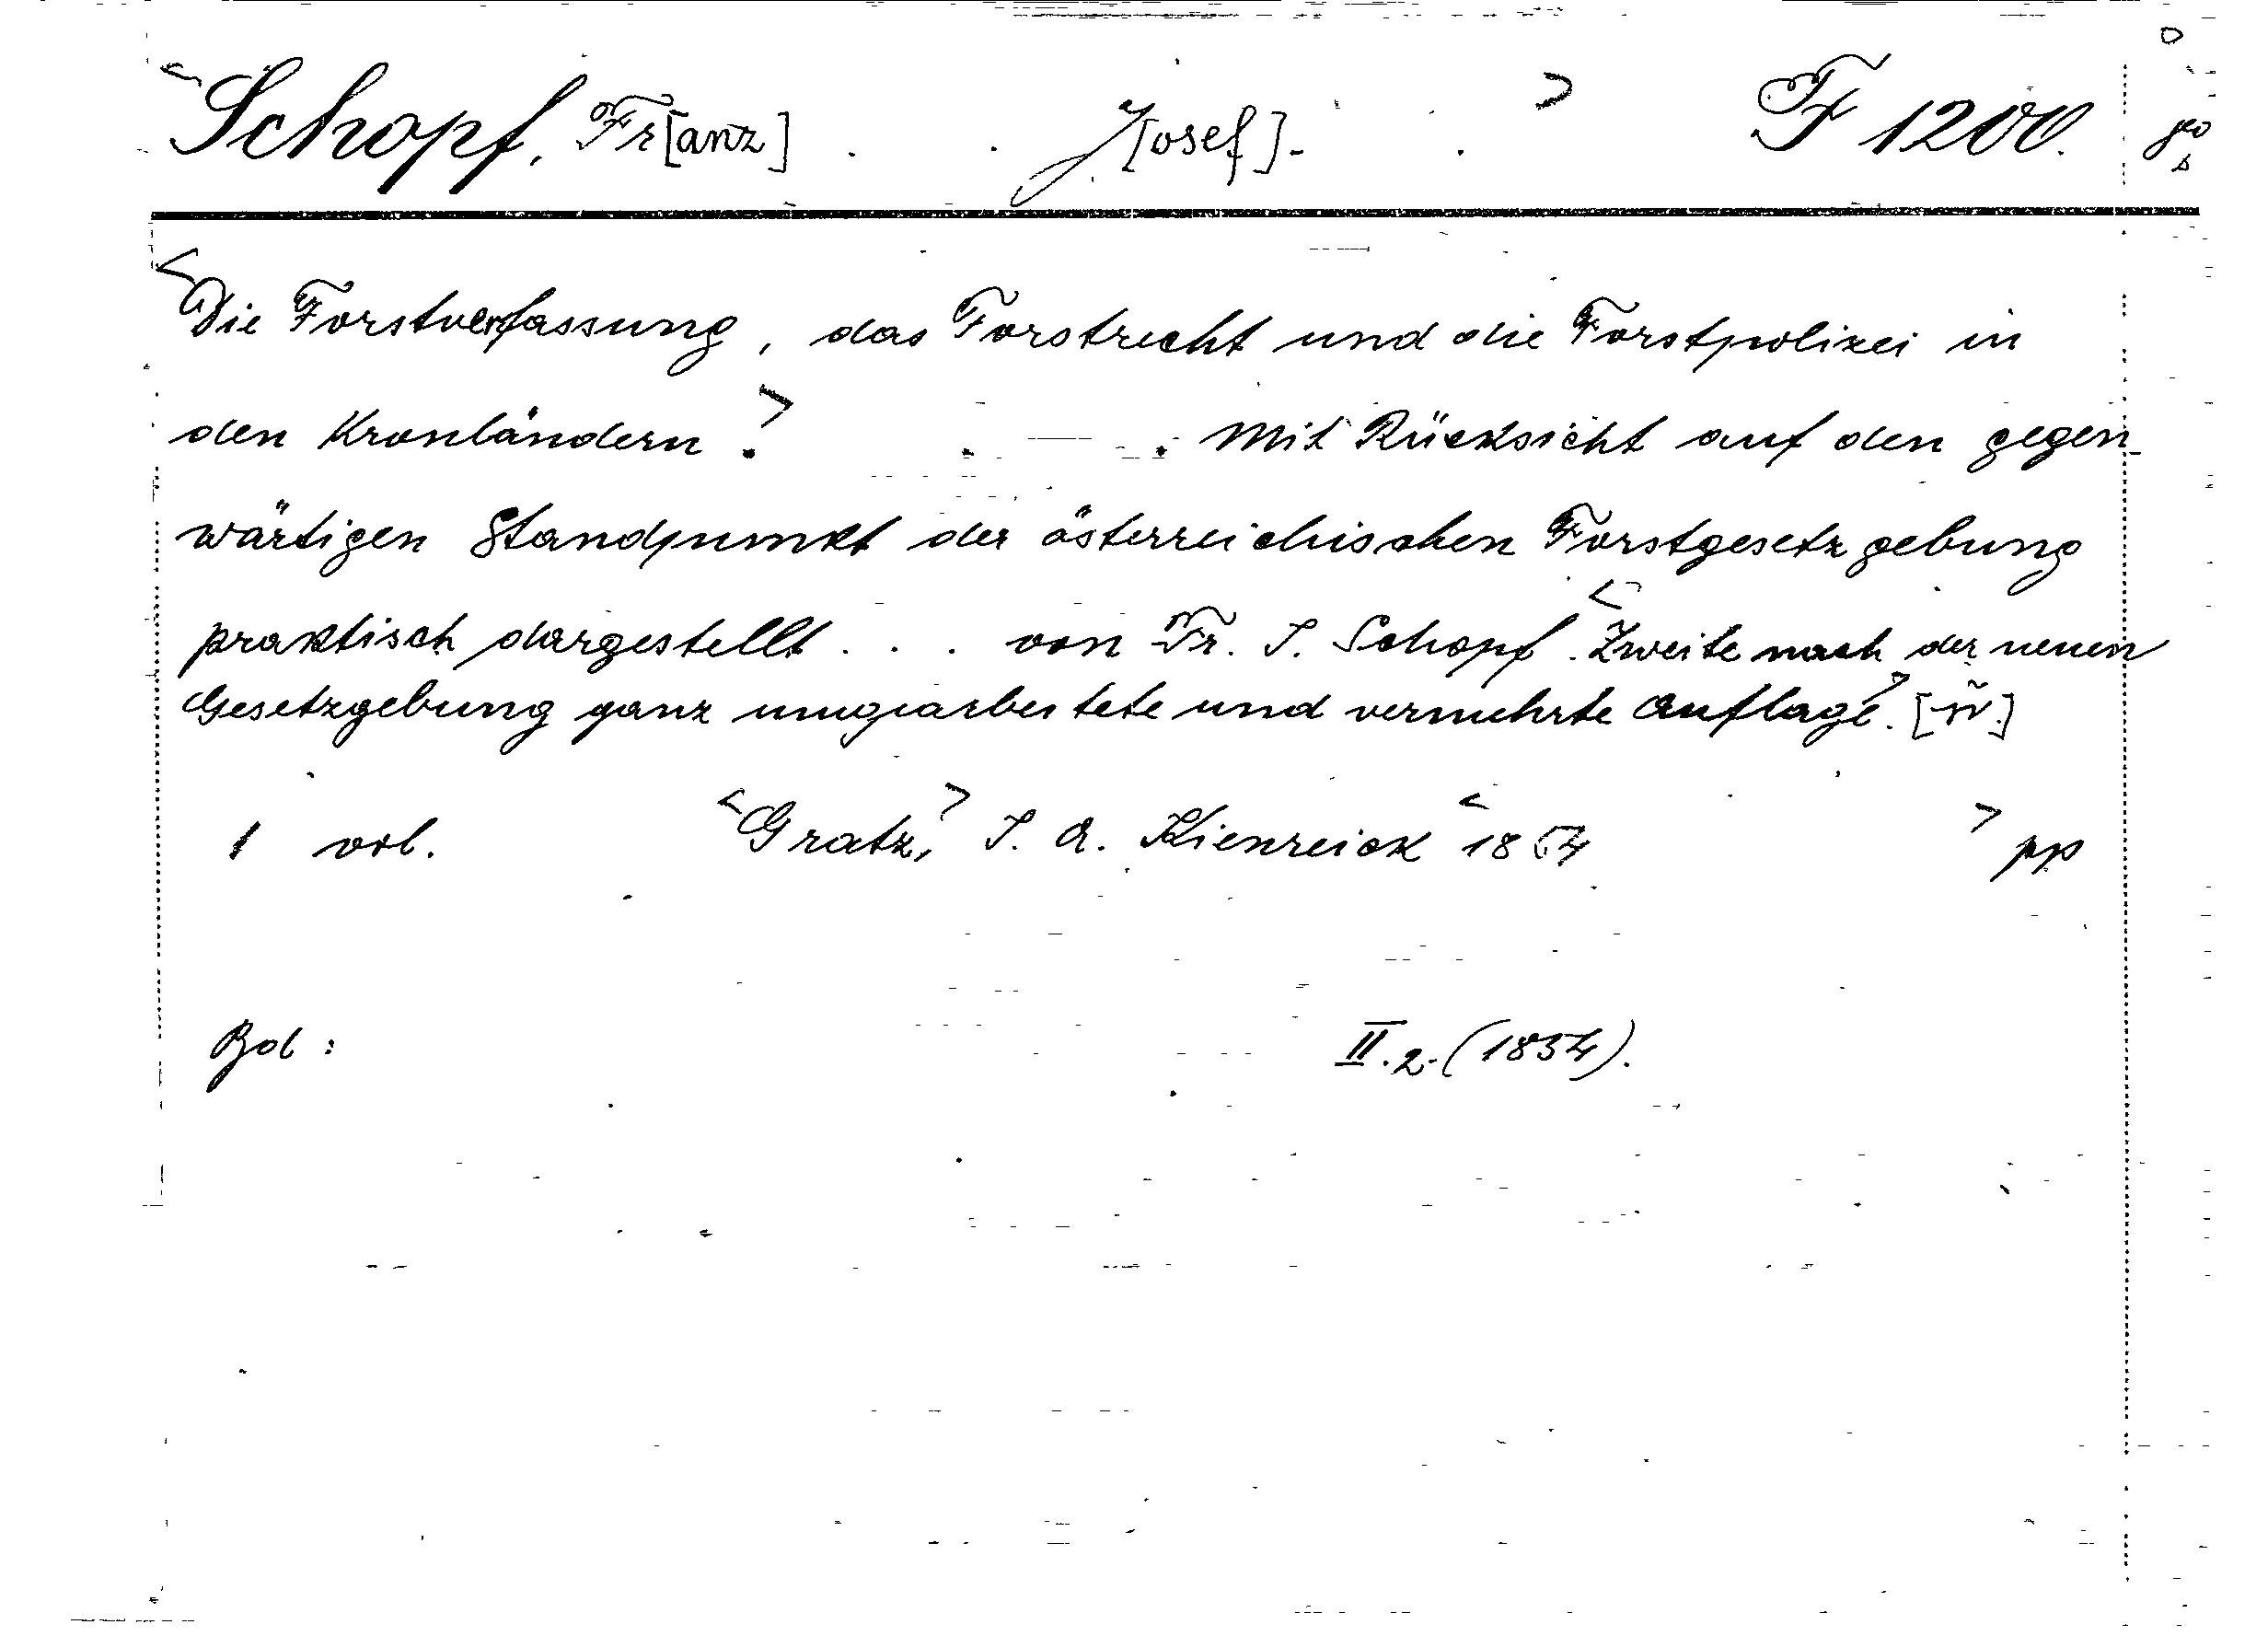 <Schopf, Fr[anz] . . J[osef]. . > F 1200.
<Die Forstverfassung, das Forstrecht und die Forstpolizei in
den Kronländern.> . . Mit Rücksicht auf den gegen-
wärtigen Standpunkt der österreichischen Forstgesetzgebung
praktisch dargestellt . . . von Fr. J. Schopf. <Zweite nach der neuen
Gesetzgebung ganz umgearbeitete und vermehrte Auflage.>
1 vol. <Gratz,> J. A. Kienreick <1854 > pp
Bol : II.2.(1854).